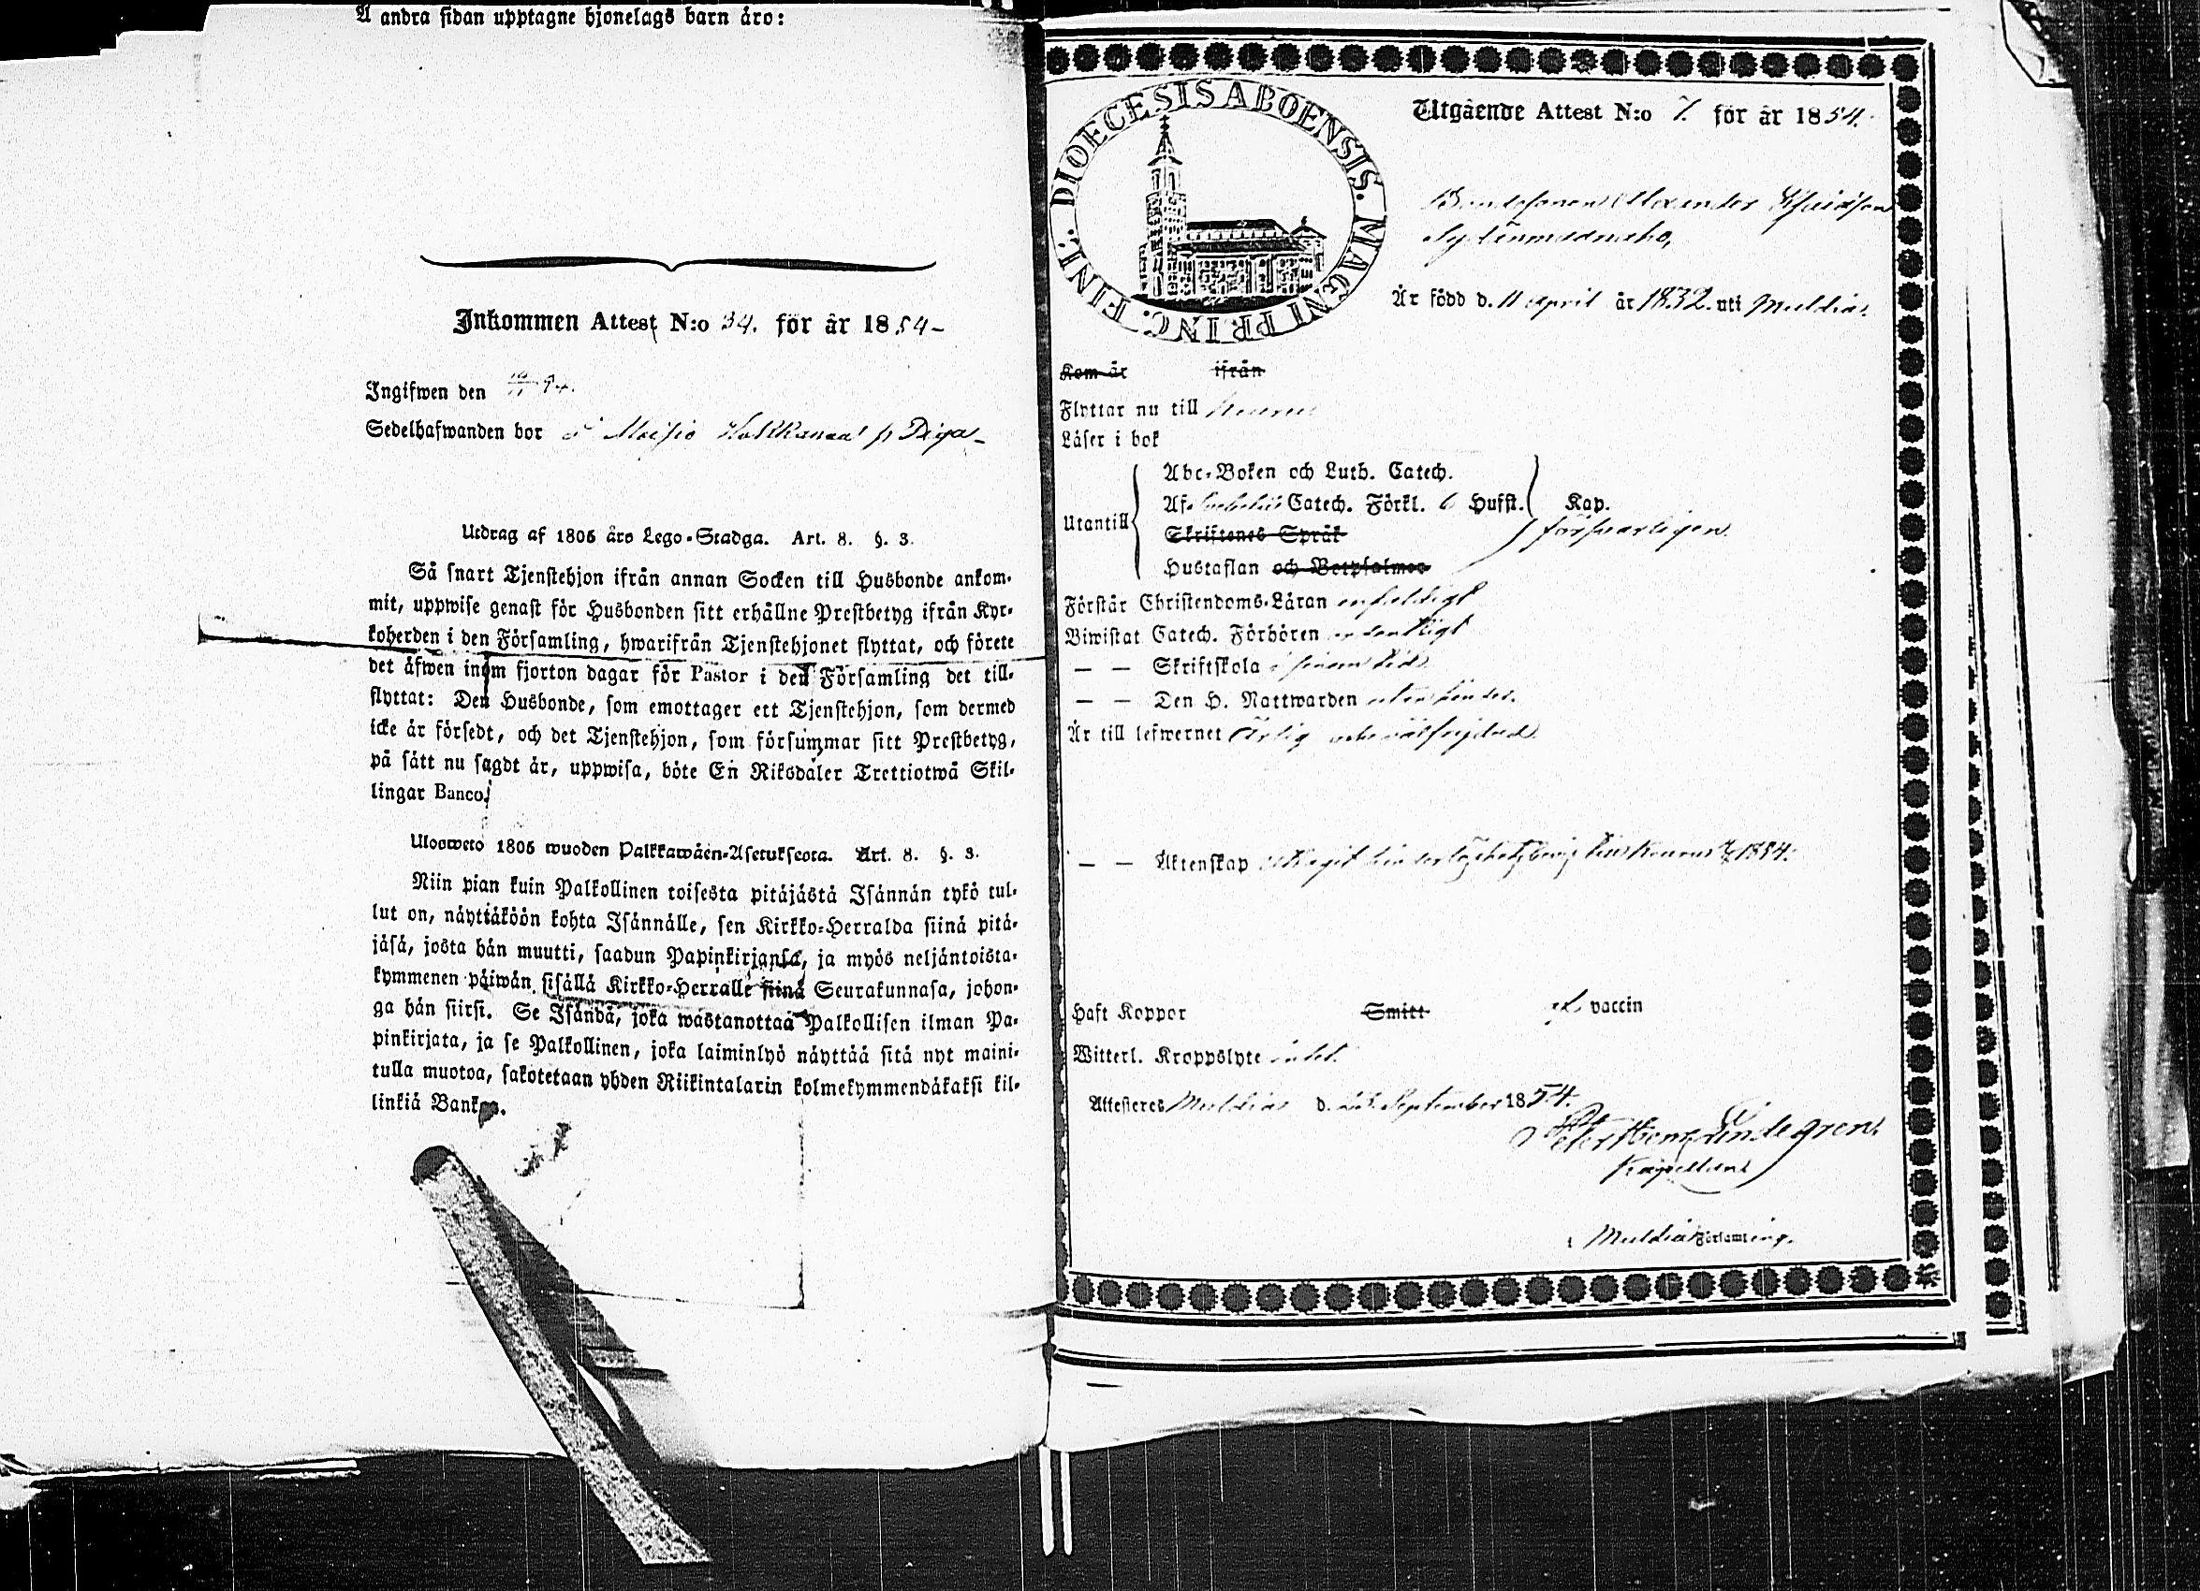 Å andra sidan upptagne hjonelags barn äro:
Inkommen Attest N:o 34. för år 1854-
Ingifwen den
Sedelhafwanden bor
Utdrag af 1805 års Lego-Stadga. Art. 8. §. 3.
Så snart Tjenstehjon ifrån annan Socken till Husbonde ankom-
mit, uppwise genast för Husbonden sitt erhållne Prestbetyg ifrån Kyr-
koherden i den Församling, hwarifrån Tjenstehjonet flyttat, och förete
det äfwen inom fjorton dagar för Pastor i den Församling det till-
flyttat: Den Husbonde, som emottager ett Tjenstehjon, som dermed
icke är försedt, och det Tjenstehjon, som försummar sitt Prestbetyg,
på sätt nu sagdt är, uppwisa, böte En Riksdaler Trettiotwå Skil-
lingar Banco.
Ulosweto 1805 wuoden Palkkawäen-Asetuksesta. Art. 8. §. 3.
Niin pian kuin Palkollinen toisesta pitäjästä Isännän tykö tul-
lut on, näyttäköön kohta Isännälle, sen Kirkko-Herralda siinä pitä-
jäsä, josta hän muutti, saadun Papinkirjansa, ja myös neljäntoista-
kymmenen päiwän sisällä Kirkko-Herralle siinä Seurakunnasa, johon-
ga hän siirsi. Se Isändä, joka wastanottaa Palkollisen ilman Pa-
pinkirjata, ja se Palkollinen, joka laiminlyö näyttää sitä nyt maini-
tulla muotoa, sakotetaan yhden Riikintalarin kolmekymmendäkaksi kil-
linkiä Bankos.
DIOECESIS ABOENSIS. MAGNI PRINC. FINL.
Utgående Attest N:o 7. för år 1854.
Bondesonen Alexander
Är född d. 11 April år 1832. uti Muldia.
Kom år ifrån
Flyttar nu till Keuru
Läser i bok
Utantill
Abc-Boken och Luth. Catech.
Af Catech. Förkl. 6 Hufst. Kap.
Skriftenes Språk försvarligen.
Hustaflan och Botpsalmer
Förstår Christendoms-Läran enfaldigt
Biwistat Catech. Förhören ordentligt
— — Skriftskola i sinom tid
— — Den H. Nattwarden utan hinder.
Är till lefwernet Ärlig och välfrejdad
— — Äktenskap 1854.
Haft Koppor Smitt vaccin
Witterl. Kroppslyte intet.
Attesteres Muldia d. September 1854.
Peter Henr Lindegren.
Kapellan
i Muldia Församling.